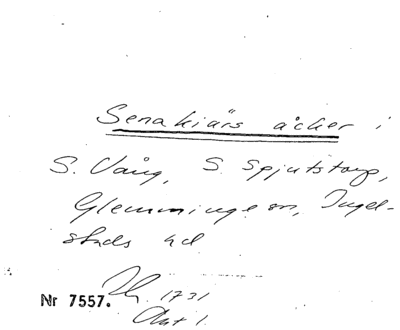 Senakiärs åcker i
S. Vång, S. Spjutstorp,
Glemminge sn, Ingel-
stads hd
Nr 7557. Ih. 1731
Akt 1.